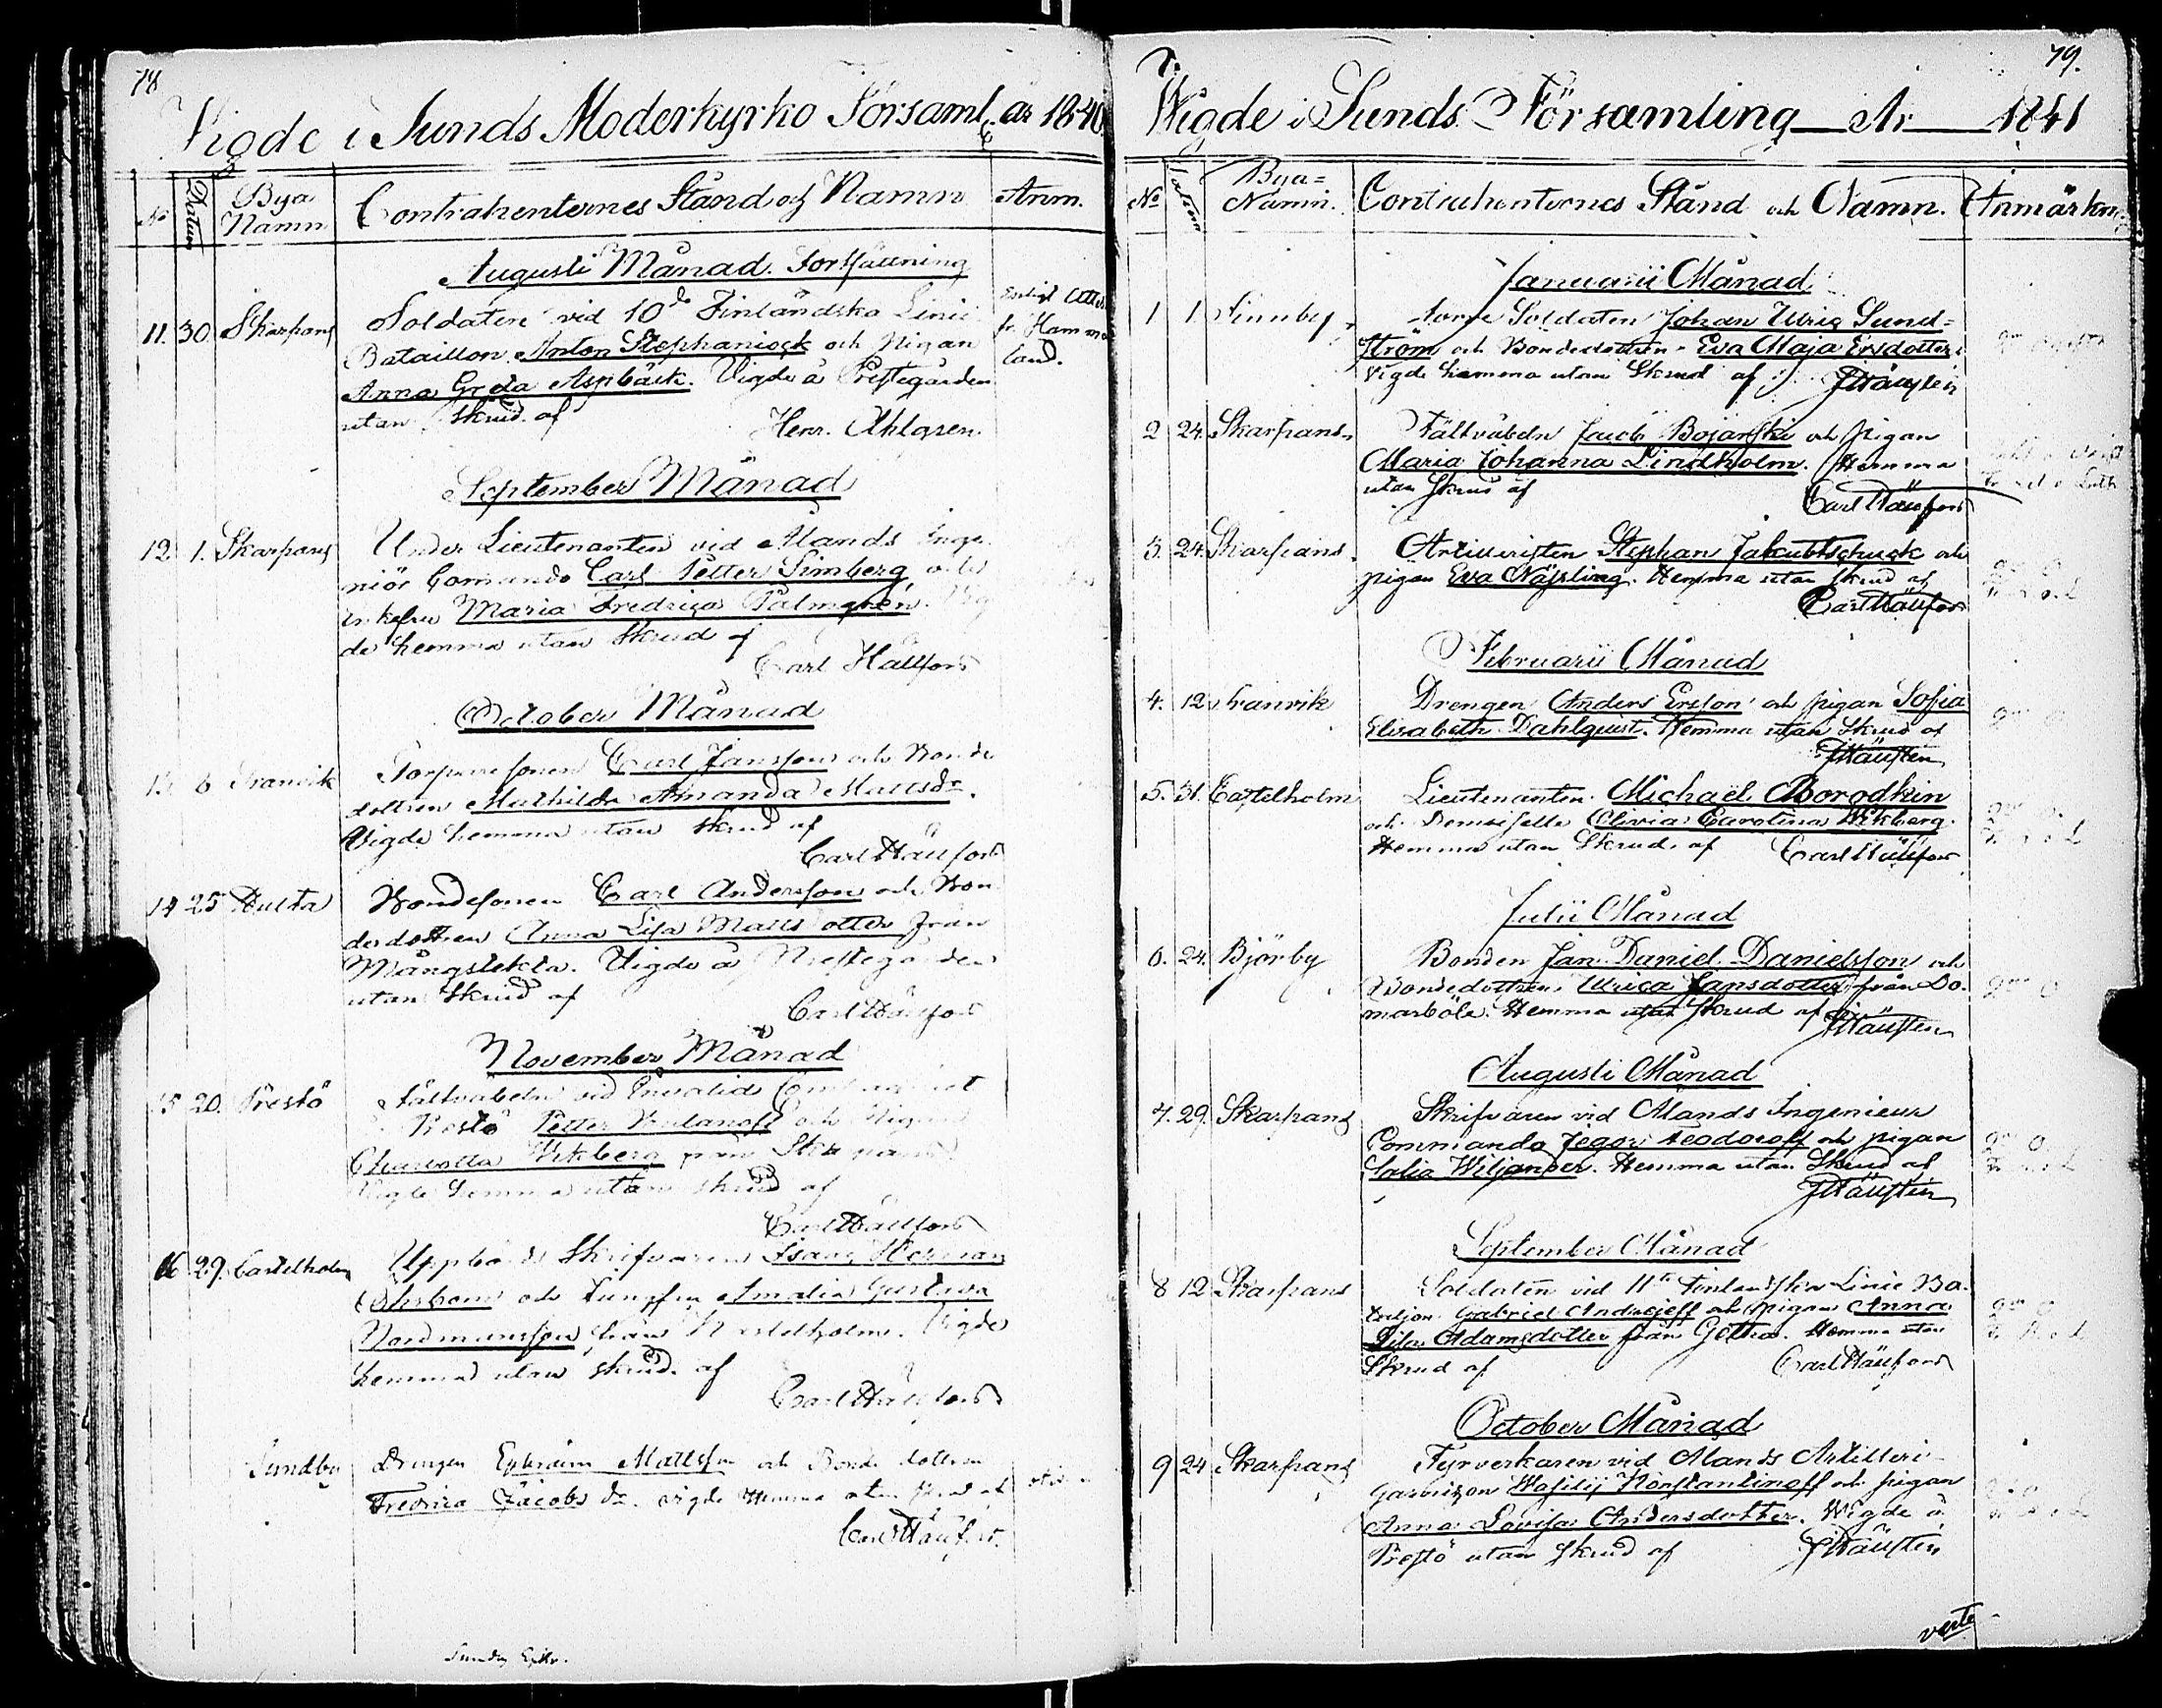 78
Vigde i Sunds Moderkyrko Församl. år 1840
No Datum Bya Namn Contrahenternes Stånd och Namn Anm.
Augusti Månad. Fortsättning
11. 30. Skarpans Soldaten vid 10de Finländska Linie
Bataillon Anton Stephaniock och Pigan
Anna Greta Aspbäck. Vigde å Prestegården
utan Skrud af
Henr. Ahlgren.
Enligt Attest
fr. Hamma
land.
September Månad
12. 1. Skarpans Under Lieutenanten vid Ålands Inge
niör Comando Carl Petter Simberg och
Enkefru Maria Fredrica Palmgren. Vig
de hemma utan Skrud af
Carl Hällfors
October Månad
13. 6 Tranvik Torparesonen Carl Jansson och Bonde
dottren Mathilda Amanda Mattsdr.
Vigde hemma utan Skrud af
Carl Hällfors
14 25 Hulta Bondesonen Carl Andersson och Bon
dedottren Anna Lisa Mattsdotter från
Mångstekta. Vigde å Prestegården
utan Skrud af
Carl Hällfors
November Månad
15 20. Prestö Fältväbeln vid Invalid
Prestö Petter och Pigan
Charlotta Wikberg från Skarpans
Vigde hemma utan skrud af
Carl Hällfors
16. 29. Castelholm Uppbörds Skrifvaren Isaac Herman
Öhrbom och Jungfru Amalia Gustava
Nordmansson från Kastelholm. Vigde
hemma utan skrud. af
Carl Hällfors
Sundby Drengen Ephraim Mattsson och Bonde dottren
Fredrica Jacobs dr. vigde Hemma utan skrud af
Carl Hällfors.
79.
Wigde i Sunds Församling År 1841
No Datum Bya=Namn. Contrahenternes Stånd och Namn. Anmärkn.
Januarii Månad
1 1. Finnby Torpe Soldaten Johan Ulric Sund=
ström och Bondedottren Eva Maja Ersdotter
Vigde hemma utan Skrud af
2 24. Skarpans Fältväbeln Jacob Bojarski och pigan
Maria Johanna Lindholm. Hemma
utan Skrud af
Carl Hällfors
3. 24. Skarpans. Artilleristen Stephan Jakubtschuck och
pigan Eva Näsling. Hemma utan skrud af
Carl Hällfors
Februarii Månad
4. 12. Tranvik Drengen Anders Ersson och pigan Sofia
Elisabeth Dahlquist. Hemma utan Skrud af
5. 31. Castelholm Lieutenanten Michaël Borodkin
och Demoiselle Olivia Carolina Wikberg.
Hemma utan Skrud. af
Carl Hällfors
Julii Månad
6. 24. Björby Bonden Jan Daniel Danielsson och
Bondedottren Ulrica Jansdotter från Do-
marböle. Hemma utan Skrud af
Augusti Månad
7. 29. Skarpans Skrifvaren vid Ålands Ingenieur
Commando Jegor Feodoroff och pigan
Wiljander. Hemma utan Skrud af
September Månad
8 12 Skarpans Soldaten vid 11te Finländska Linie Ba-
taljon Gabriel Andrejeff och pigan Anna
Lisa Adamsdotter från Getha. Hemma utan
Skrud af
Carl Hällfors
October Månad
9 24 Skarpans Fyrverkaren vid Ålands Artilleri
Garnizon Wasilij Konstantinoff och pigan
Anna Lovisa Andersdotter. Wigde å
Prestö utan Skrud af
verte